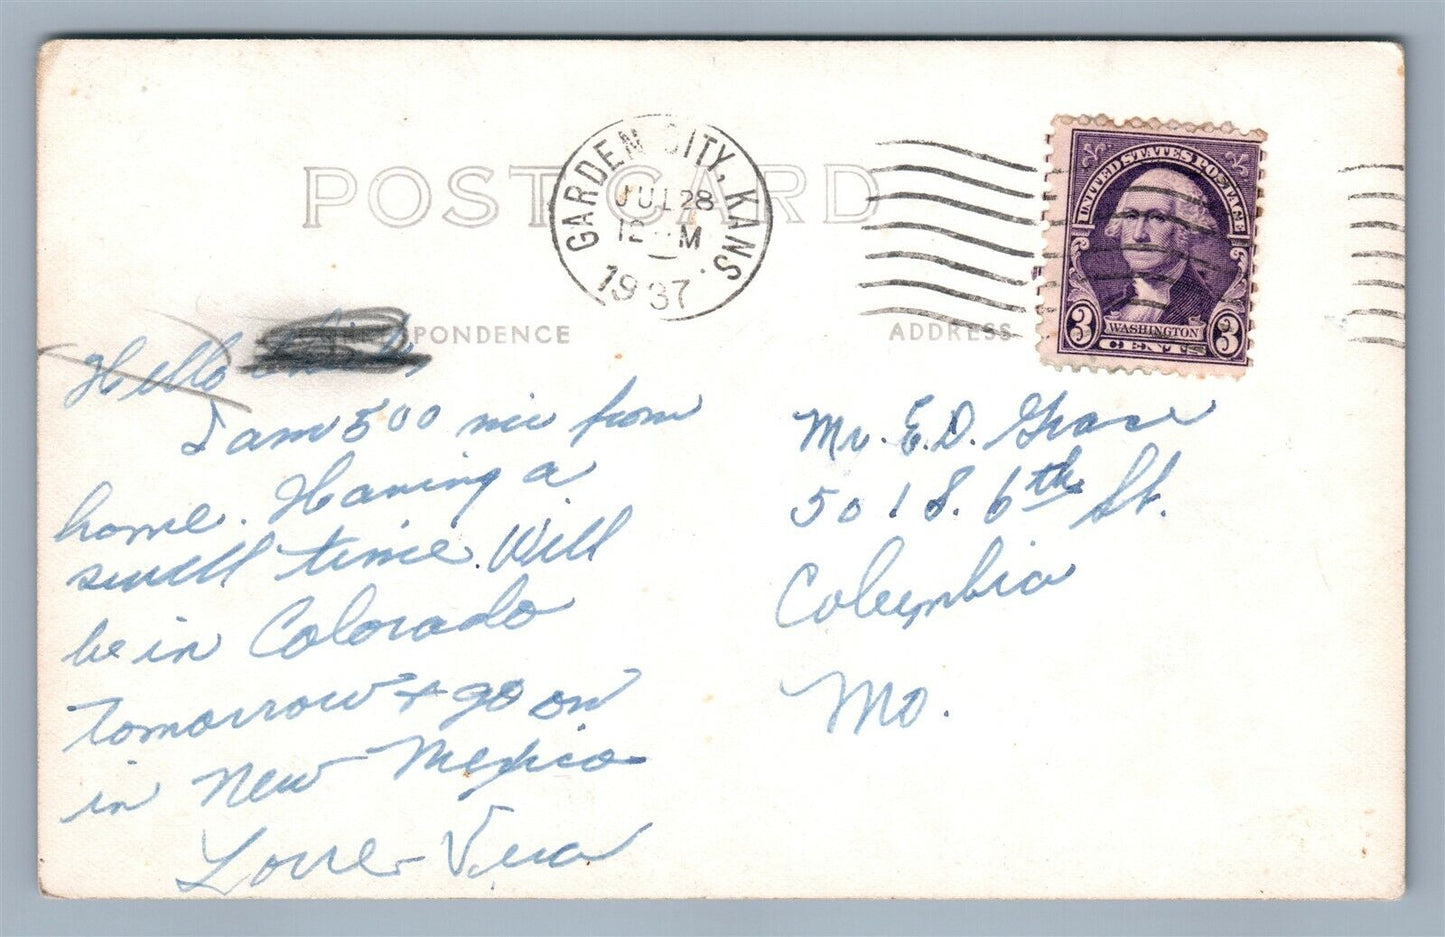 POST CARD
GARDEN CITY, KANS.
JUL 28
12 M
1937
UNITED STATES POSTAGE
3 WASHINGTON 3
CENTS
PONDENCE
ADDRESS
Hello
I am 500 mi from
home. Having a
swell time. Will
be in Colorado
tomorrow + go on
in New Mexico
Love - Vera
Mr. E. D. Grace
501 S. 6th St.
Columbia
Mo.